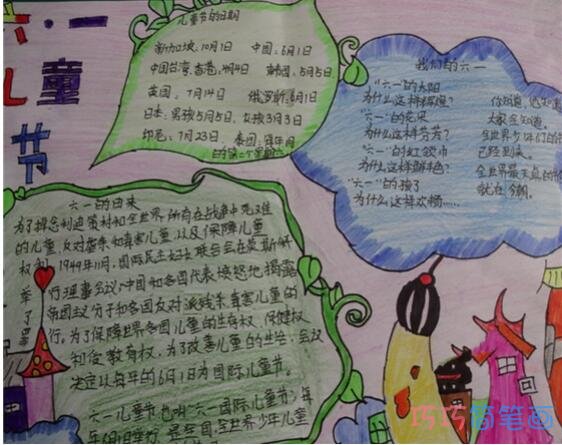 六·一
儿童
节
儿童节的日期
新加坡：10月1日 中国：6月1日
中国台湾、香港：4月4日 韩国：5月5日
英国：7月14日 俄罗斯6月1日
日本：男孩5月5日，女孩3月3日
印尼：7月23日， 泰国：每年1月
的第二个星期六
我们的六一
"六一"的太阳
为什么这样辉煌？
"六一"的花朵
为什么这样芳芳？
"六一"的红领巾
为什么这样鲜色？
"六一"的孩子
为什么这样欢畅……
你知道，他知道
大家全知道。
全世界少年们的
已经到来。
全世界最天真的
就在今朝。
六一的由来
为了悼念利迪策村和全世界所有在战争中死难
的儿童，反对虐杀和毒害儿童，以及保障儿童
权利，1949年11月，国际民主妇女联合会在莫斯科
举行理事会议，中国和各国代表愤怒地揭露
了帝国主义分子和各国反对派残杀、毒害儿童的
罪行。为了保障世界各国儿童的生存权、保健权
和受教育权，为了改善儿童的生活，会议
决定以每年的6月1日为国际儿童节。
六一儿童节也叫"六一国际儿童节"，每
年6月1日举行，是全国、全世界少年儿童
巧巧简笔画